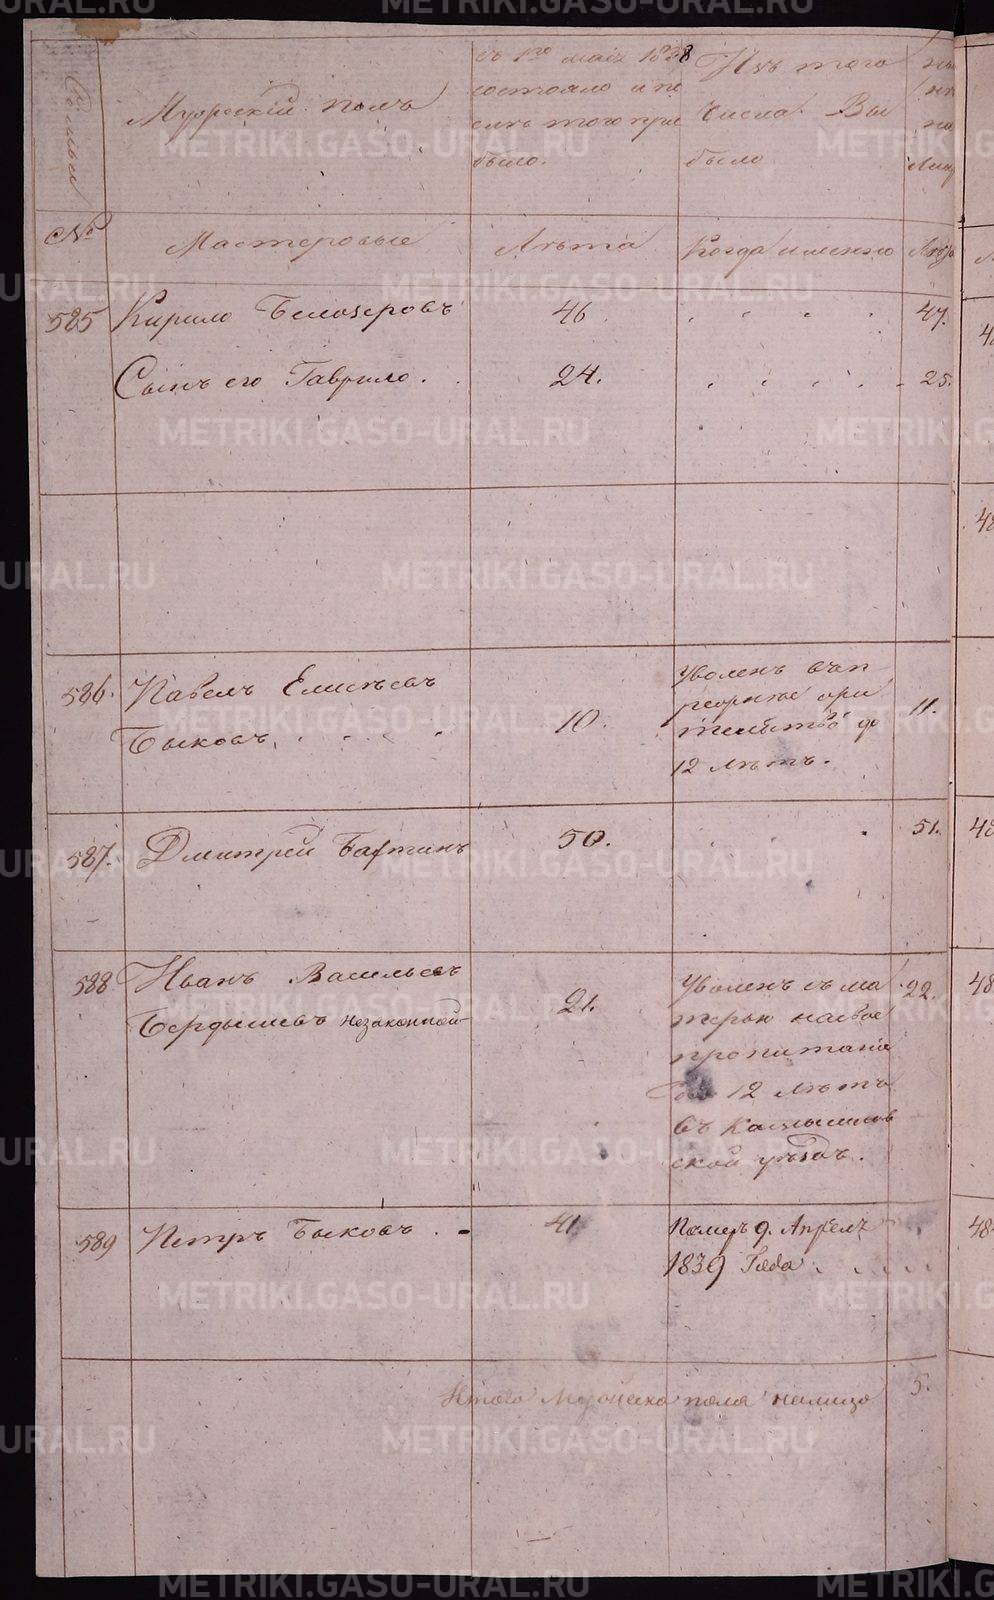 METRIKI.GASO-URAL.RU
Семьи
Мужескiй полъ
съ 1го маiя 1838
состояло и по
слѣ того при
было.
Изъ того
числа Вы
было
№
Мастеровые
Лѣта
Когда именно
Лѣта
585
Кирило Белозеровъ
46
47.
Сынъ его Гаврило.
24.
25.
586.
Павелъ Елисѣевъ
Быковъ.
10.
Уволенъ
до
12 лѣтъ.
11.
587.
Дмитрей Бафтинъ
50.
51.
588
Иванъ Васильевъ
Бердышевъ незаконной
21.
Уволенъ съ ма
терью насвое
пропитанiе
до 12 лѣтъ
въ Камышлов
ской уѣздъ.
22.
589
Петръ Быковъ.
41
Померъ 9. Апрѣля
1839 Года
Итого Мужеска пола налицо
5.